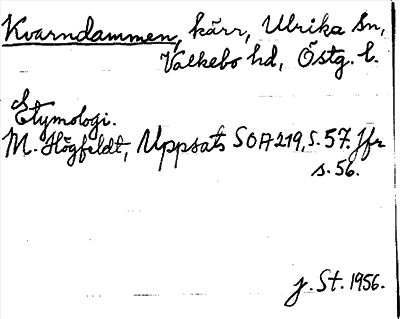 Kvarndammen, kärr, Ulrika sn,
Valkebo hd, Östg. l.
Etymologi.
M. Högfeldt, Uppsats SOA219, s. 57. Jfr
s. 56.
J. St. 1956.